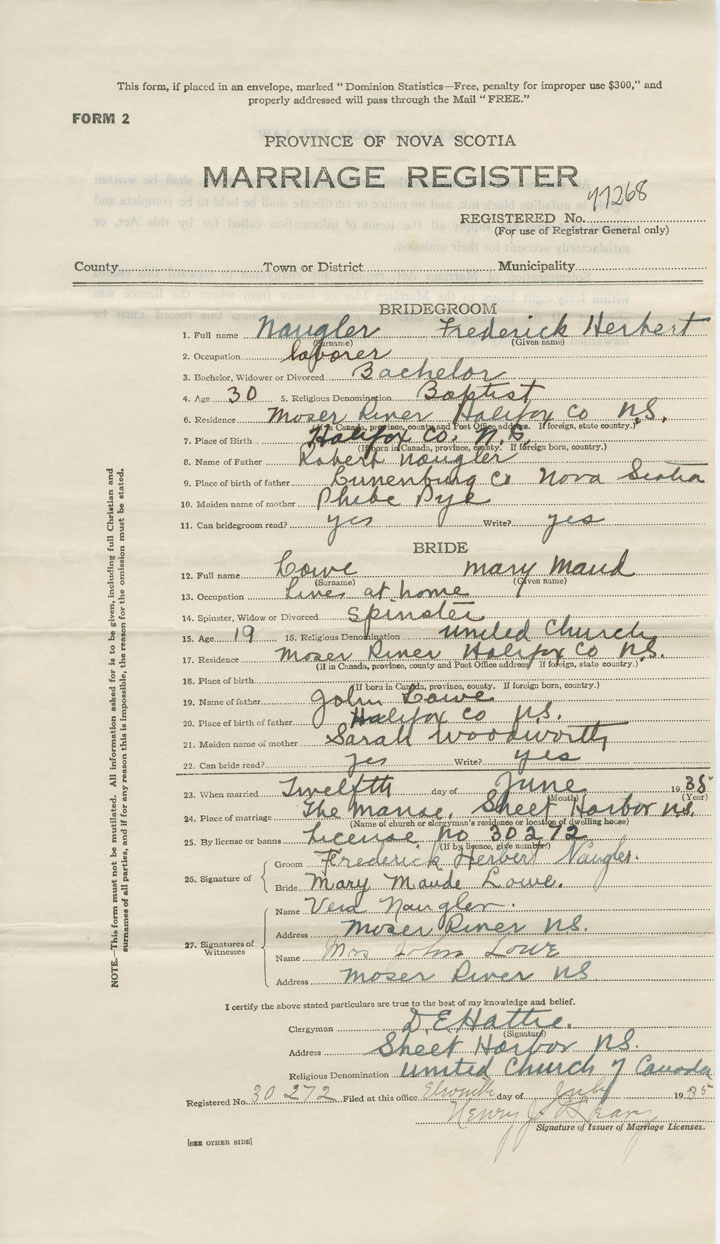 This form, if placed in an envelope, marked "Dominion Statistics—Free, penalty for improper use $300," and
properly addressed will pass through the Mail "FREE."
FORM 2
PROVINCE OF NOVA SCOTIA
MARRIAGE REGISTER
REGISTERED No. 11268
(For use of Registrar General only)
County Town or District Municipality
BRIDEGROOM
1. Full name Naugler Frederick Herbert
(Surname) (Given name)
2. Occupation laborer
3. Bachelor, Widower or Divorced Bachelor
4. Age 30 5. Religious Denomination Baptist
6. Residence Moser River Halifax Co N.S.
(If in Canada, province, county and Post Office address. If foreign, state country.)
7. Place of Birth Halifax Co. N.S.
(If born in Canada, province, county. If foreign born, country.)
8. Name of Father Robert Naugler
9. Place of birth of father Lunenburg Co Nova Scotia
10. Maiden name of mother Phebe Pye
11. Can bridegroom read? yes Write? yes
BRIDE
12. Full name Lowe Mary Maud
(Surname) (Given name)
13. Occupation Lives at home
14. Spinster, Widow or Divorced Spinster
15. Age 19 16. Religious Denomination United Church
17. Residence Moser River Halifax Co N.S.
(If in Canada, province, county and Post Office address. If foreign, state country.)
18. Place of birth
(If born in Canada, province, county. If foreign born, country.)
19. Name of father John Lowe
20. Place of birth of father Halifax Co N.S.
21. Maiden name of mother Sarah Woodworth
22. Can bride read? yes Write? yes
23. When married Twelfth day of June 1935
(Month) (Year)
24. Place of marriage The Manse, Sheet Harbor N.S.
(Name of church or clergyman's residence or location of dwelling house)
25. By license or banns License no 30272
(If by licence, give number)
26. Signature of
Groom Frederick Herbert Naugler.
Bride Mary Maude Lowe.
27. Signatures of Witnesses
Name Vera Naugler.
Address Moser River NS.
Name Mrs John Lowe
Address Moser River NS
I certify the above stated particulars are true to the best of my knowledge and belief.
Clergyman D.E. Hattie.
(Signature)
Address Sheet Harbor N.S.
Religious Denomination United Church of Canada
Registered No. 30272 Filed at this office day of July 1935
Henry J.
Signature of Issuer of Marriage Licenses.
[SEE OTHER SIDE]
NOTE.—This form must not be mutilated. All information asked for is to be given, including full Christian and
surnames of all parties, and if for any reason this is impossible, the reason for the omission must be stated.